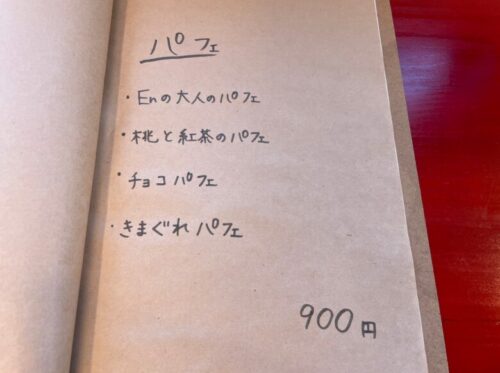 パフェ
・Enの大人のパフェ
・桃と紅茶のパフェ
・チョコパフェ
・きまぐれパフェ
900円